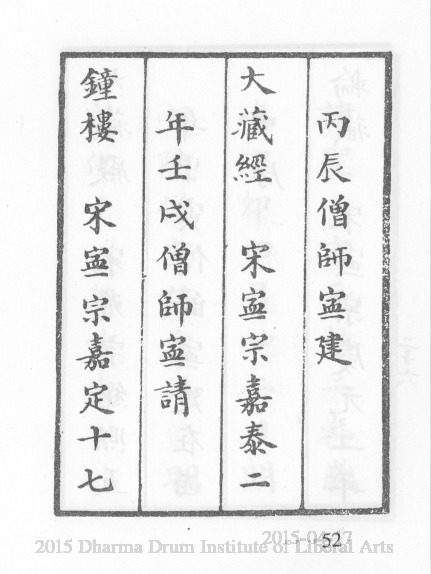 丙辰僧師寍建
大藏經 宋寍宗嘉泰二
年壬戌僧師寍請
鐘樓 宋寍宗嘉定十七
52
2015 Dharma Drum Institute of Liberal Arts